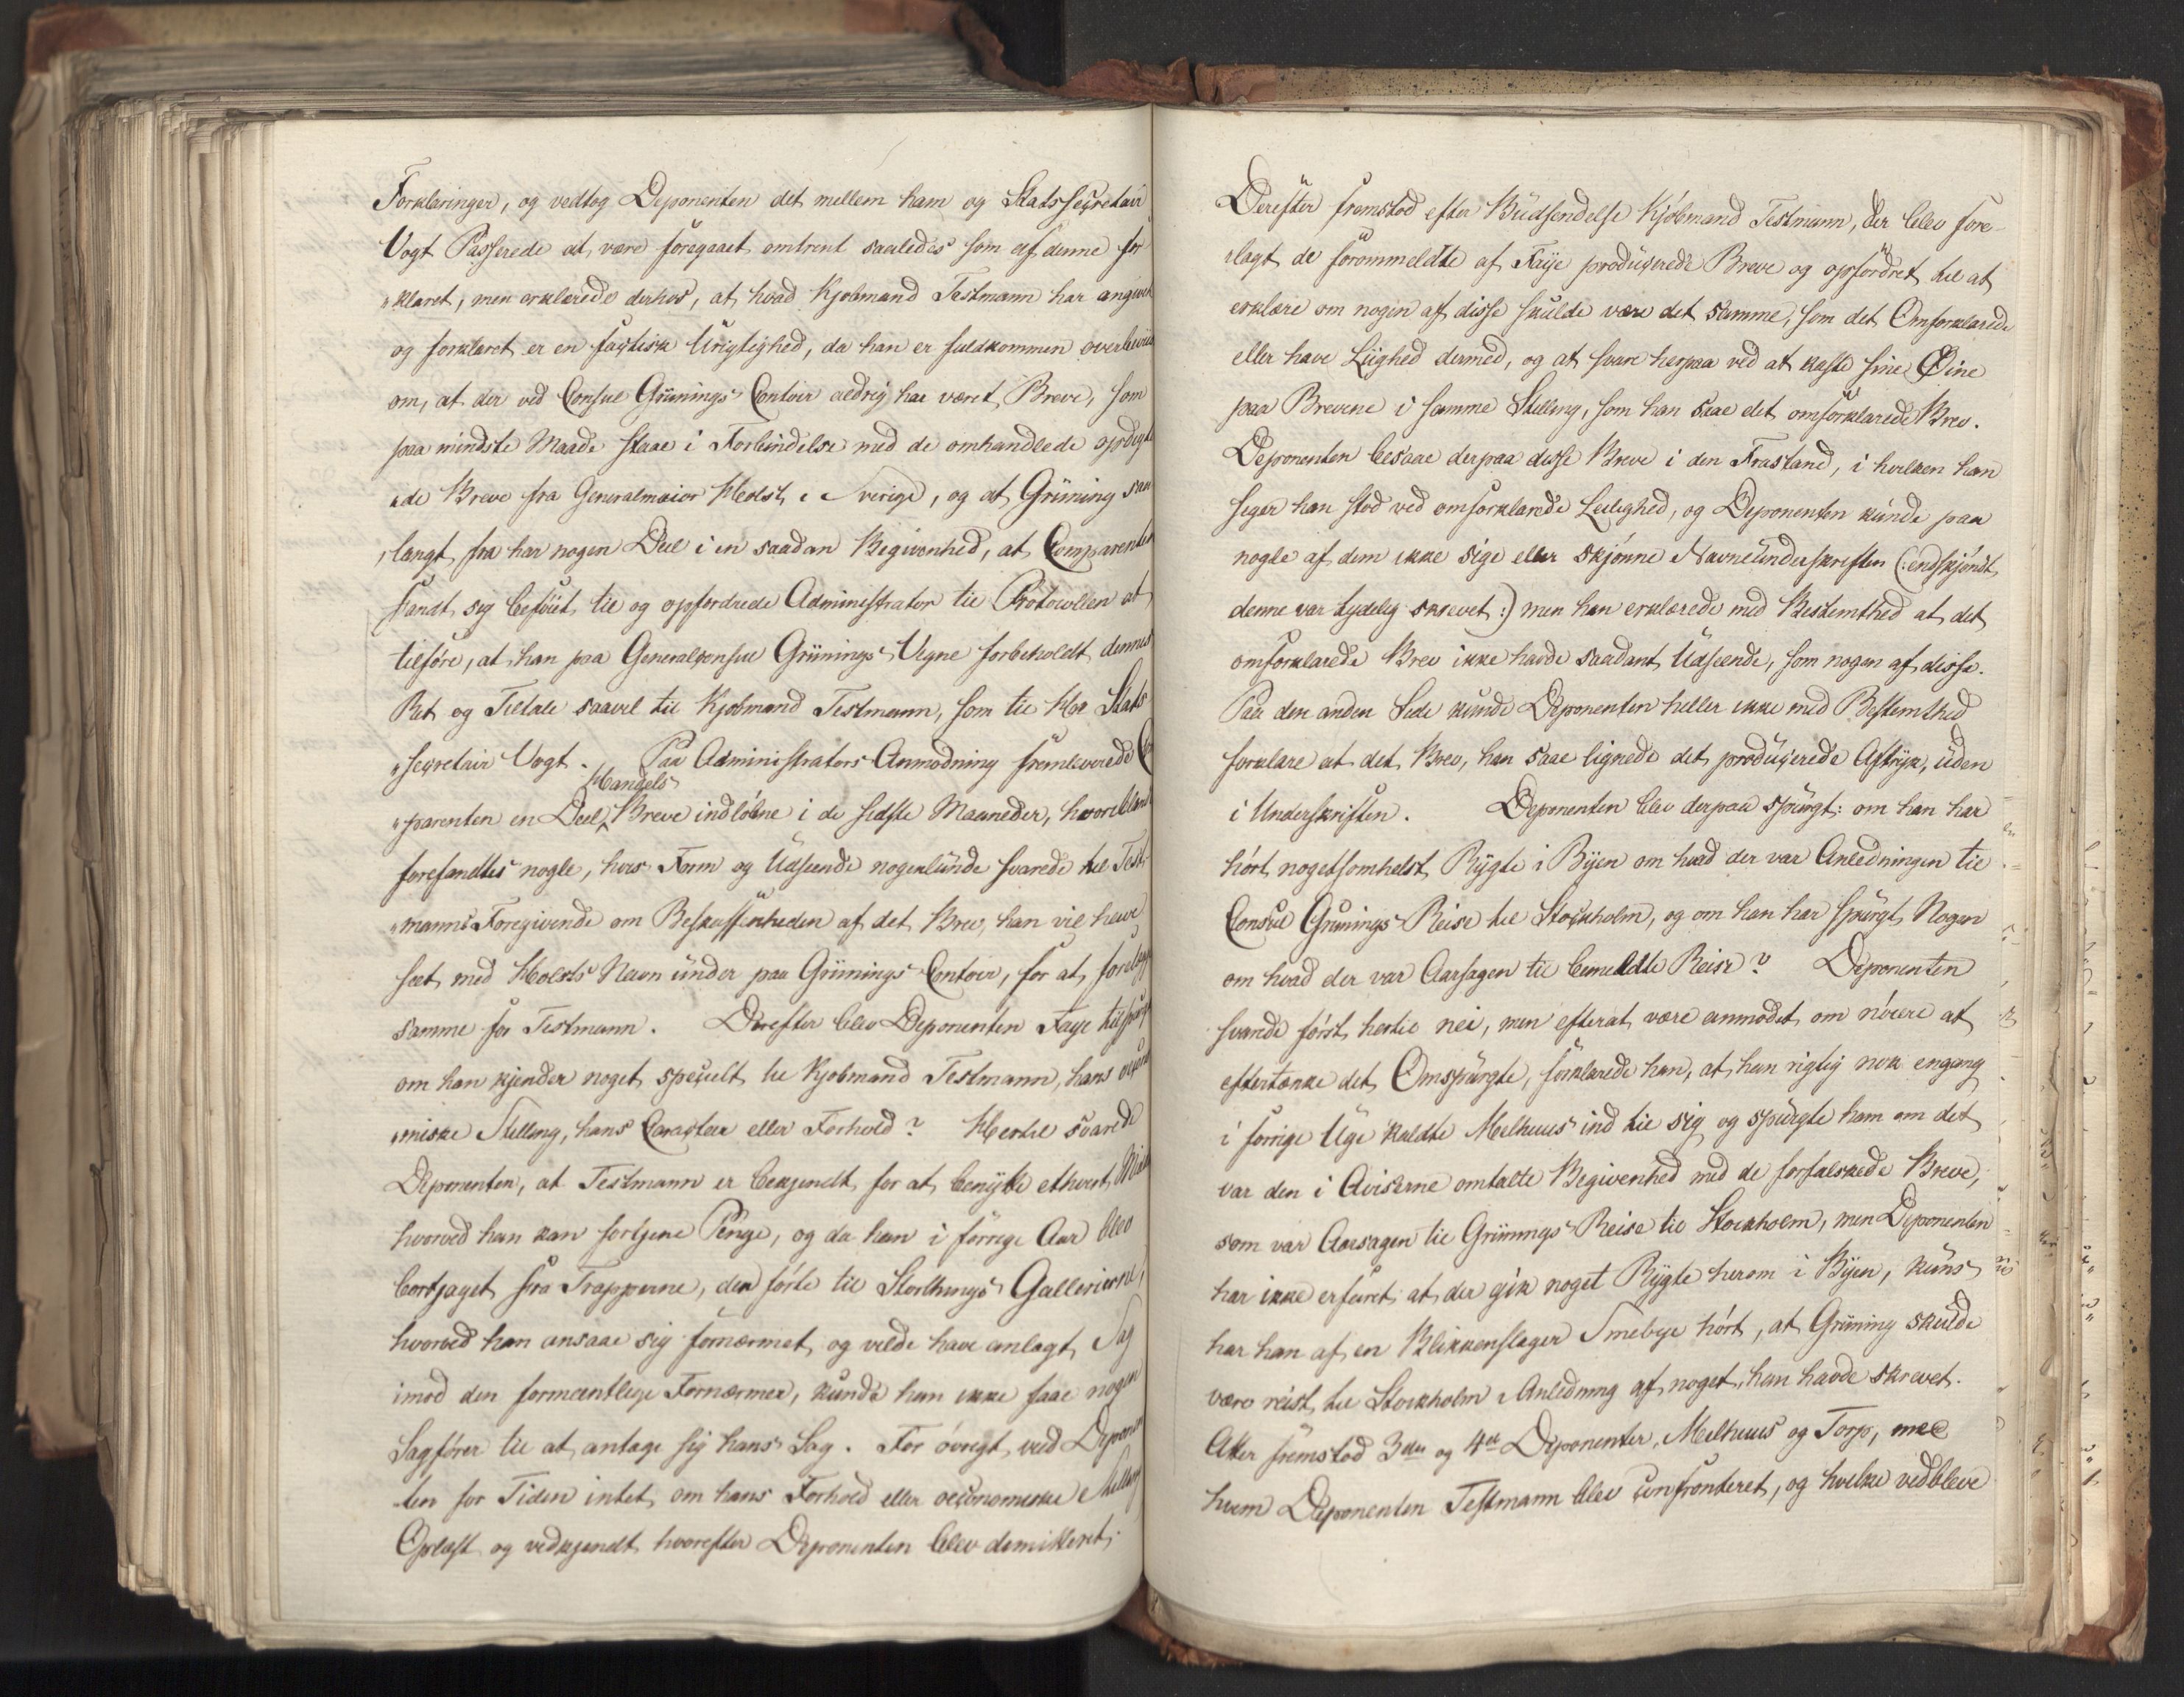 Forklaringer, og vedtog Deponenten det mellem ham og Statssecretair
Vogt Passerede at være foregaaet omtrent saaledes som af denne for
„klaret, men erklærede derhos, at hvad Kjøbmand Testmann har angivet
og forklaret er en factisk Urigtighed, da han er fuldkommen overbeviist
om, at der ved Consul Grünings Contoir aldrig har været Breve, som
paa mindste Maade staae i Forbindelse med de omhandlede opdigt
„de Breve fra Generalmaior Holst i Sverige, og at Grüning saa
„langt fra har nogen Deel i en saadan Begivenhed, at Comparenten
fandt sig beføiet til og opfordrede Administrator til Protocollen at
tilføre, at han paa Generalconsul Grünings Vegne forbeholdt dennes
Ret og Tiltale saavel til Kjøbmand Testmann, som til Hr Stats
„secretair Vogt. Paa Administrators Anmodning fremleverede
„parenten en Deel Handels Breve indløbne i de sidste Maaneder, hvoriblandt
forefandtes nogle, hvis Form og Udseende nogenlunde svarede til Test-
„manns Foregivende om Beskaffenheden af det Brev, han vil have
seet med Holsts Navn under paa Grünings Contoir, for at forelægge
samme for Testmann. Derefter blev Deponenten Faye tilspurgt
om han kjender noget specielt til Kjøbmand Testmann, hans oecono
„miske Stilling, hans Caracteer eller Forhold? Hertil svarede
Deponenten, at Testmann er bekjendt for at benytte ethvert Middel
hvorved han kan fortjene Penge, og da han i forrige Aar blev
bortjaget fra Trapperne, der førte til Storthings Gallerierne,
hvorved han ansaae sig fornærmet, og vilde have anlagt Sag
imod den formeentlige Fornærmer, kunde han ikke faae nogen
Sagfører til at antage sig hans Sag. For øvrigt veed Deponen
-ten for Tiden intet om hans Forhold eller oeconomiske Stilling
Oplæst og vedkjendt hvorefter Deponenten blev dimitteret.
Derefter fremstod efter Budsendelse Kjøbmand Testmann, der blev fore-
„lagt de forommeldte af Faye producerede Breve og opfordret til at
erklære om nogen af disse skulde være det samme, som det Omforklarede
eller have Liighed dermed, og at svare herpaa ved at kaste sine Øine
paa Brevene i samme Stilling, som han saae det omforklarede Brev.
Deponenten besaae derpaa disse Breve i den Frastand, i hvilken han
siger han stod ved omforklarede Leilighed, og Deponenten kunde paa
nogle af dem ikke sige eller skjønne Navneunderskriften (:endskjøndt
denne var tydelig skrevet:) men han erklærede med Bestemthed at det
omforklarede Brev ikke havde saadant Udseende, som nogen af disse.
Paa den anden Side kunde Deponenten heller ikke med Bestemthed
forklare at det Brev, han saae lignede det producerede Aftryk, uden
i Underskriften. Deponenten blev derpaa spurgt: om han har
hørt nogetsomhelst Rygte i Byen om hvad der var Anledningen til
Consul Grünings Reise til Stockholm, og om han har spurgt Nogen
om hvad der var Aarsagen til bemeldte Reise? Deponenten
svarede først hertil nei, men efterat være anmodet om nøiere at
eftertænke det Omspurgte, forklarede han, at han rigtig nok engang
i forrige Uge kaldte Melhuus ind til sig og spurgte ham om det
var den i Aviserne omtalte Begivenhed med de forfalskede Breve,
som var Aarsagen til Grünings Reise til Stockholm, men Deponenten
har ikke erfaret at der gik noget Rygte herom i Byen, kuns
har han af en Blikkenslager Smebye hørt, at Grüning skulde
være reist til Stockholm i Anledning af noget, han havde skrevet.
Atter fremstod 3die og 4de Deponenter, Melhuus og Torp, med
hvem Deponenten Testmann blev confronteret, og hvilke vedbleve